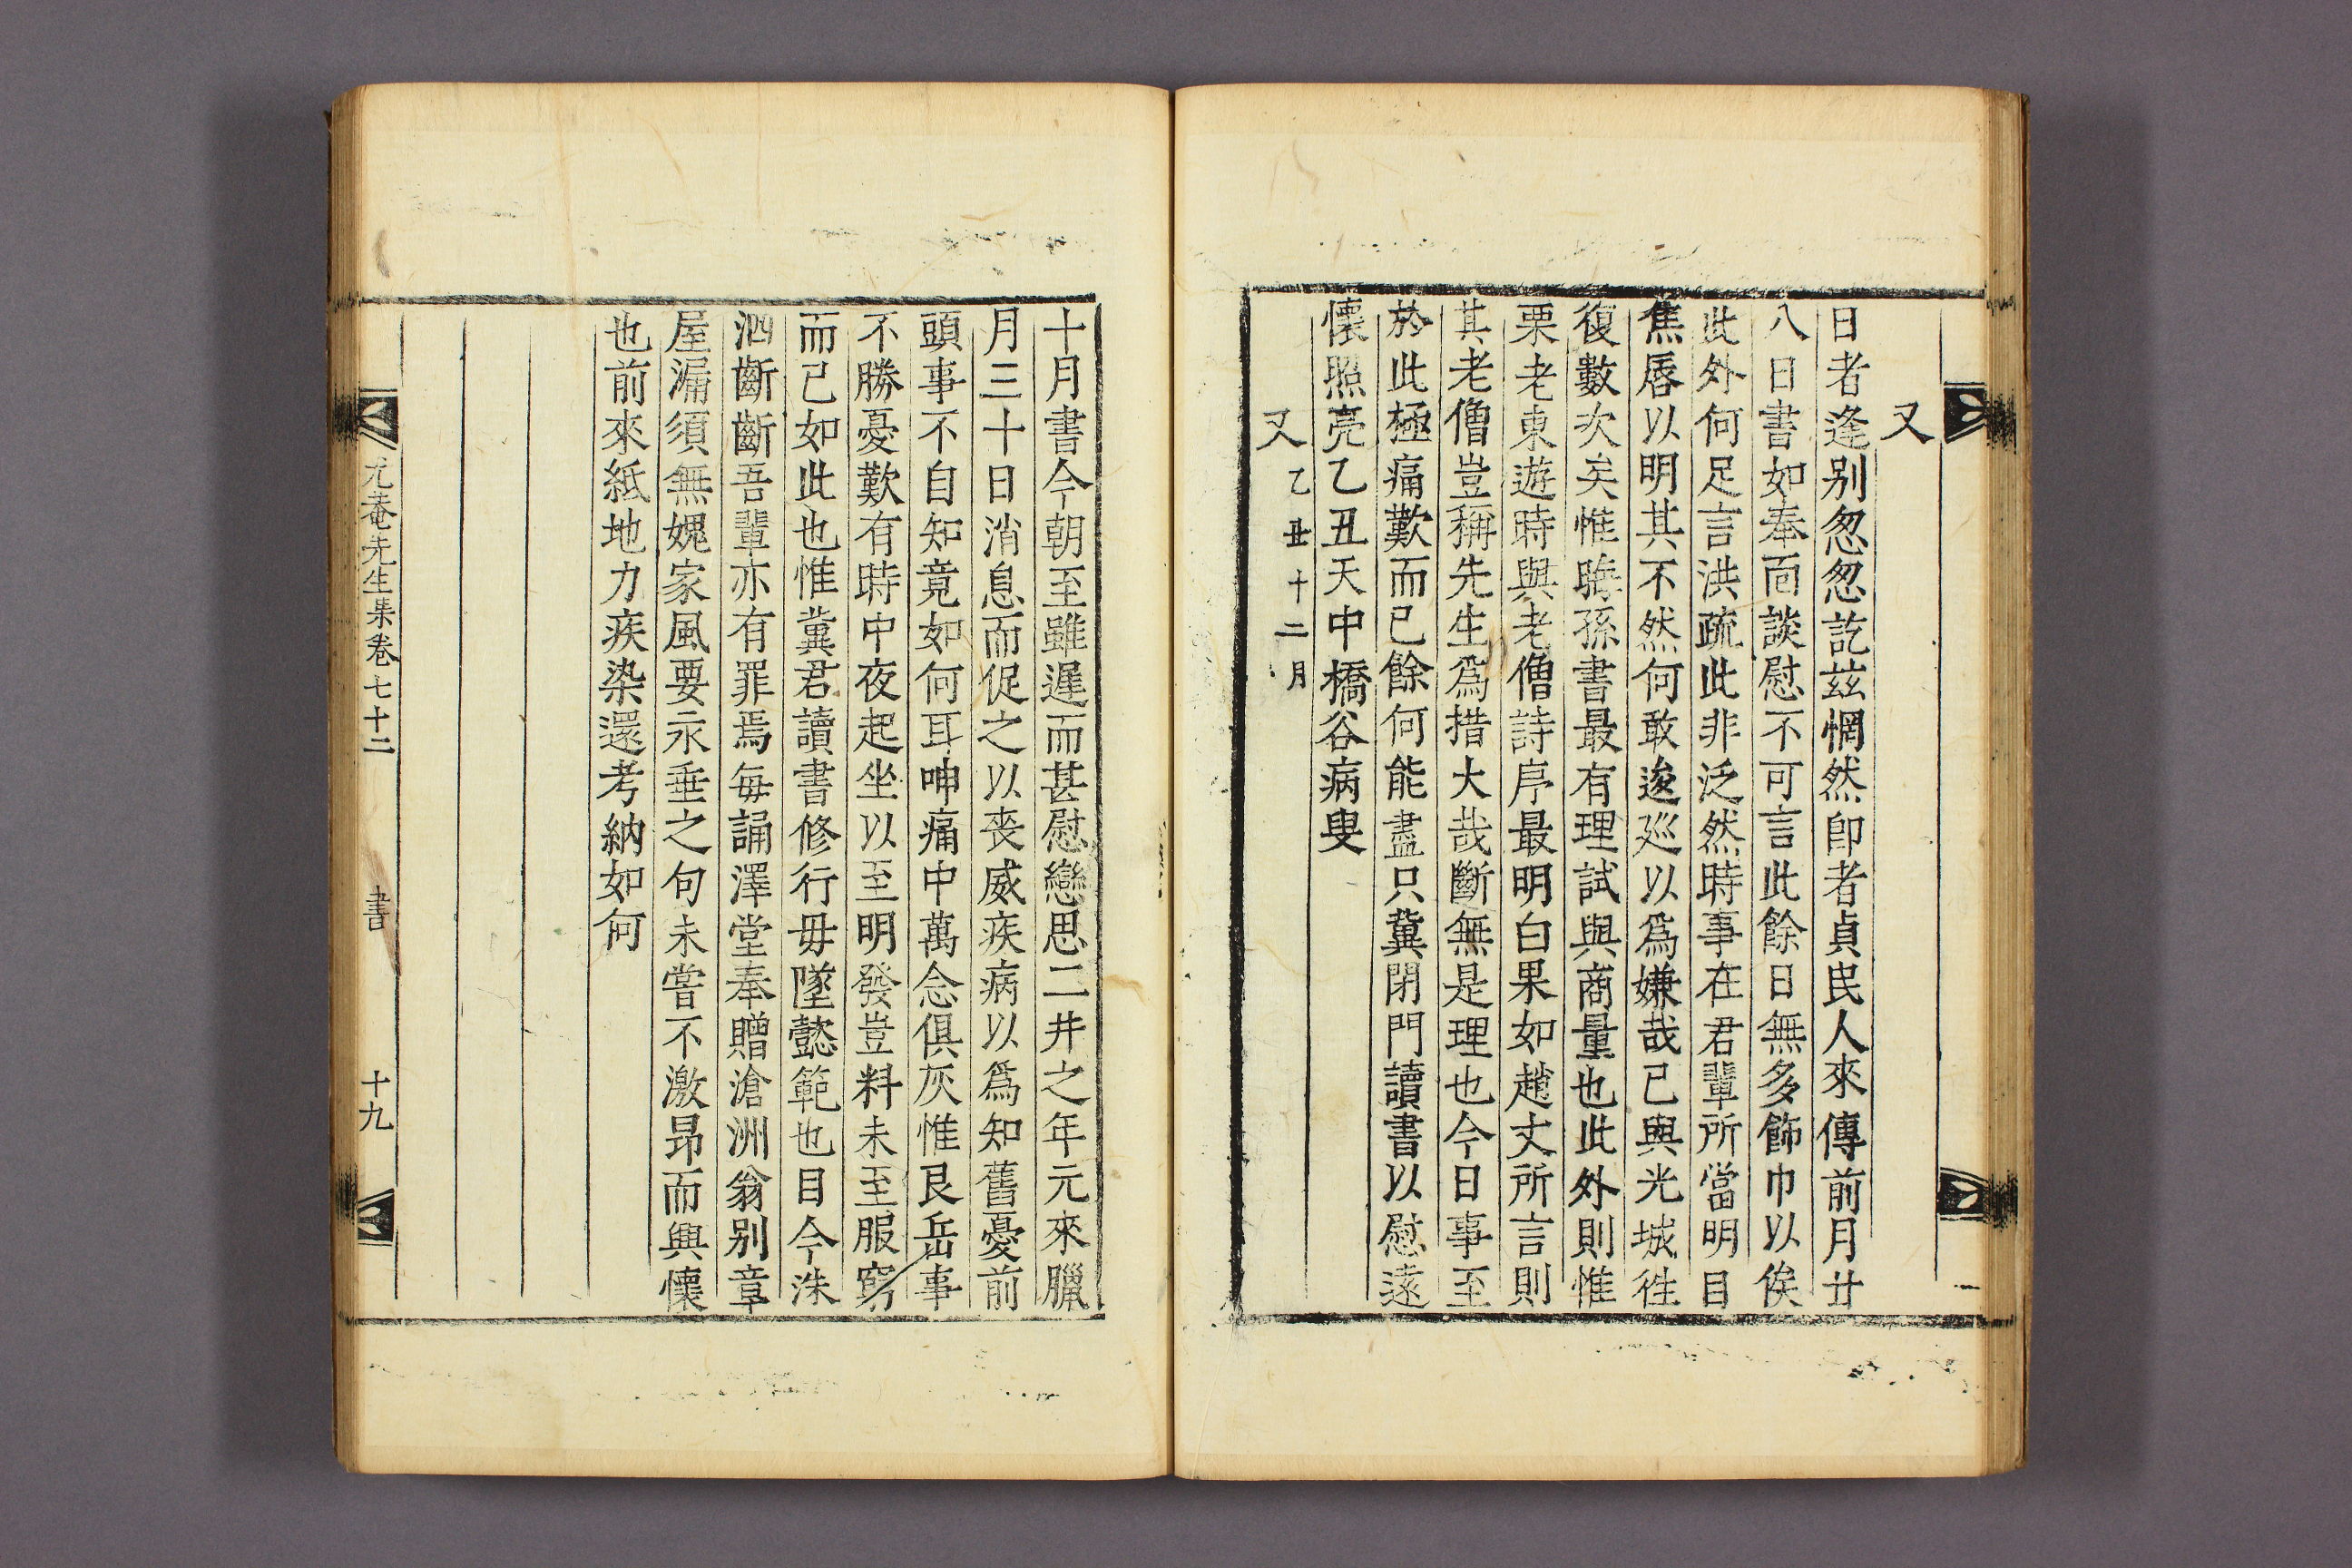 又
日者逢别忽忽訖玆惘然卽者貞民人來傳前月廿
八日書如奉面談慰不可言此餘日無多飾巾以俟
此外何足言洪疏此非泛然時事在君輩所當明目
焦唇以明其不然何敢逡廵以爲嫌哉已與光城徃
復數次矣惟晦孫書最有理試與商量也此外則惟
栗老東遊時與老僧詩序最明白果如趙丈所言則
其老僧豈稱先生爲措大哉斷無是理也今日事至
於此極痛歎而已餘何能盡只冀閉門讀書以慰遠
懷照亮乙丑天中橋谷病叟
又乙丑十二月
十月書今朝至雖遲而甚慰戀思二井之年元來臘
月三十日消息而促之以喪威疾病以爲知舊憂前
頭事不自知竟如何耳呻痛中萬念俱灰惟艮岳事
不勝憂歎有時中夜起坐以至明發豈料未至服窮
而已如此也惟冀君讀書修行毋墜懿範也目今洙
泗斷斷吾輩亦有罪焉每誦澤堂奉贈滄洲翁别章
屋漏須無媿家風要永垂之句未嘗不激昂而興懷
也前來紙地力疾染還考納如何
尤菴先生集卷七十二 書 十九